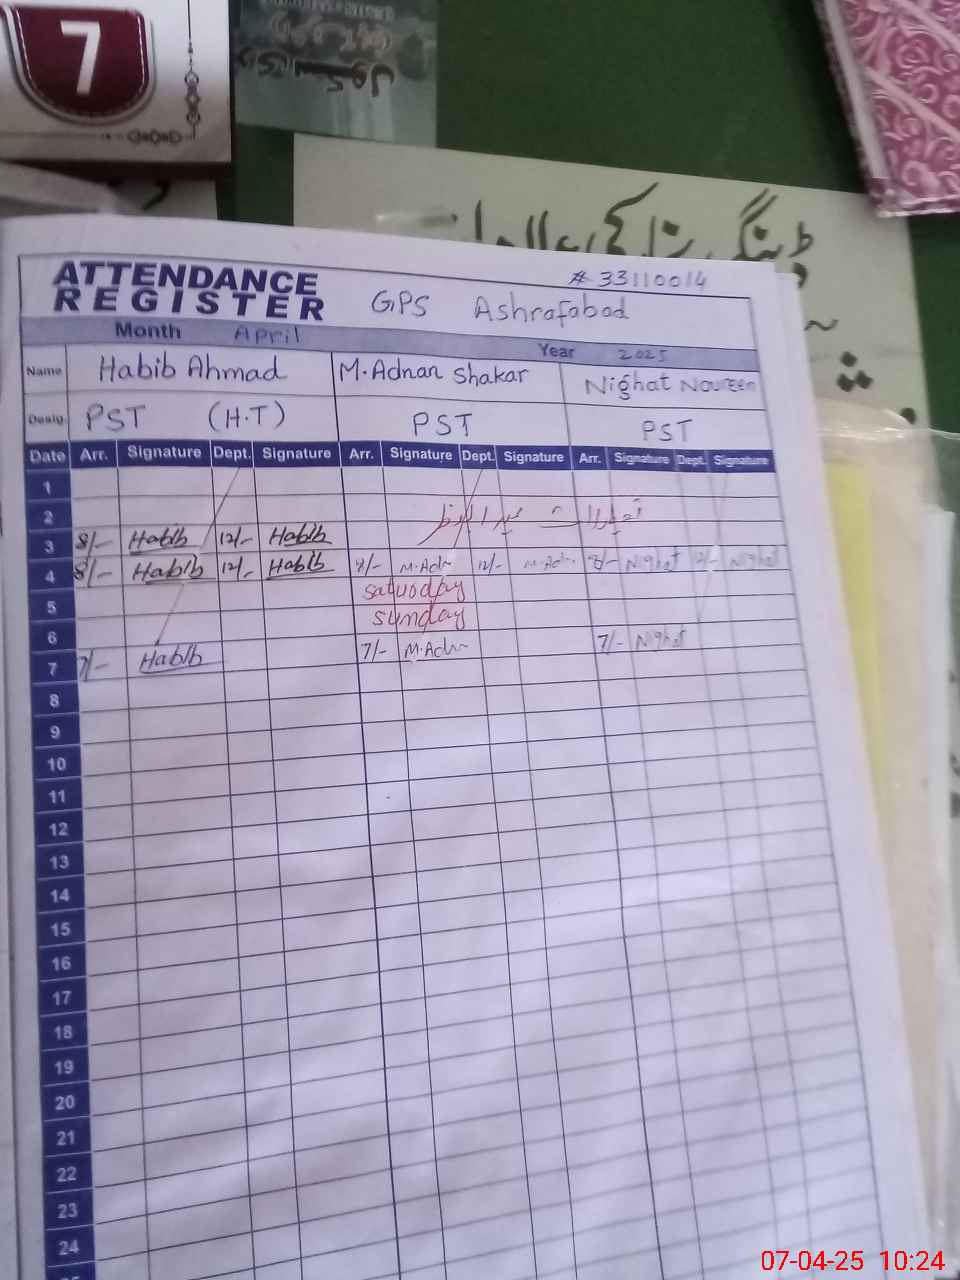 7
سکول
ڈینگی
ATTENDANCE
REGISTER
GPS Ashrafabad
# 33110014
Month April
Year 2025
Name Habib Ahmad M.Adnan Shakar Nighat Noureen
Desig. PST (H.T) PST PST
Date Arr. Signature Dept. Signature Arr. Signature Dept. Signature Arr. Signature Dept. Signature
1
2
3 8/- Habib 12/- Habib
4 8/- Habib 12/- Habib 8/- M.Adn 12/- M.Adn 8/- Nighat 12/- Nighat
5 saturday
6 sunday
7 7/- Habib 7/- M.Adn 7/- Nighat
8
9
10
11
12
13
14
15
16
17
18
19
20
21
22
23
24
07-04-25 10:24